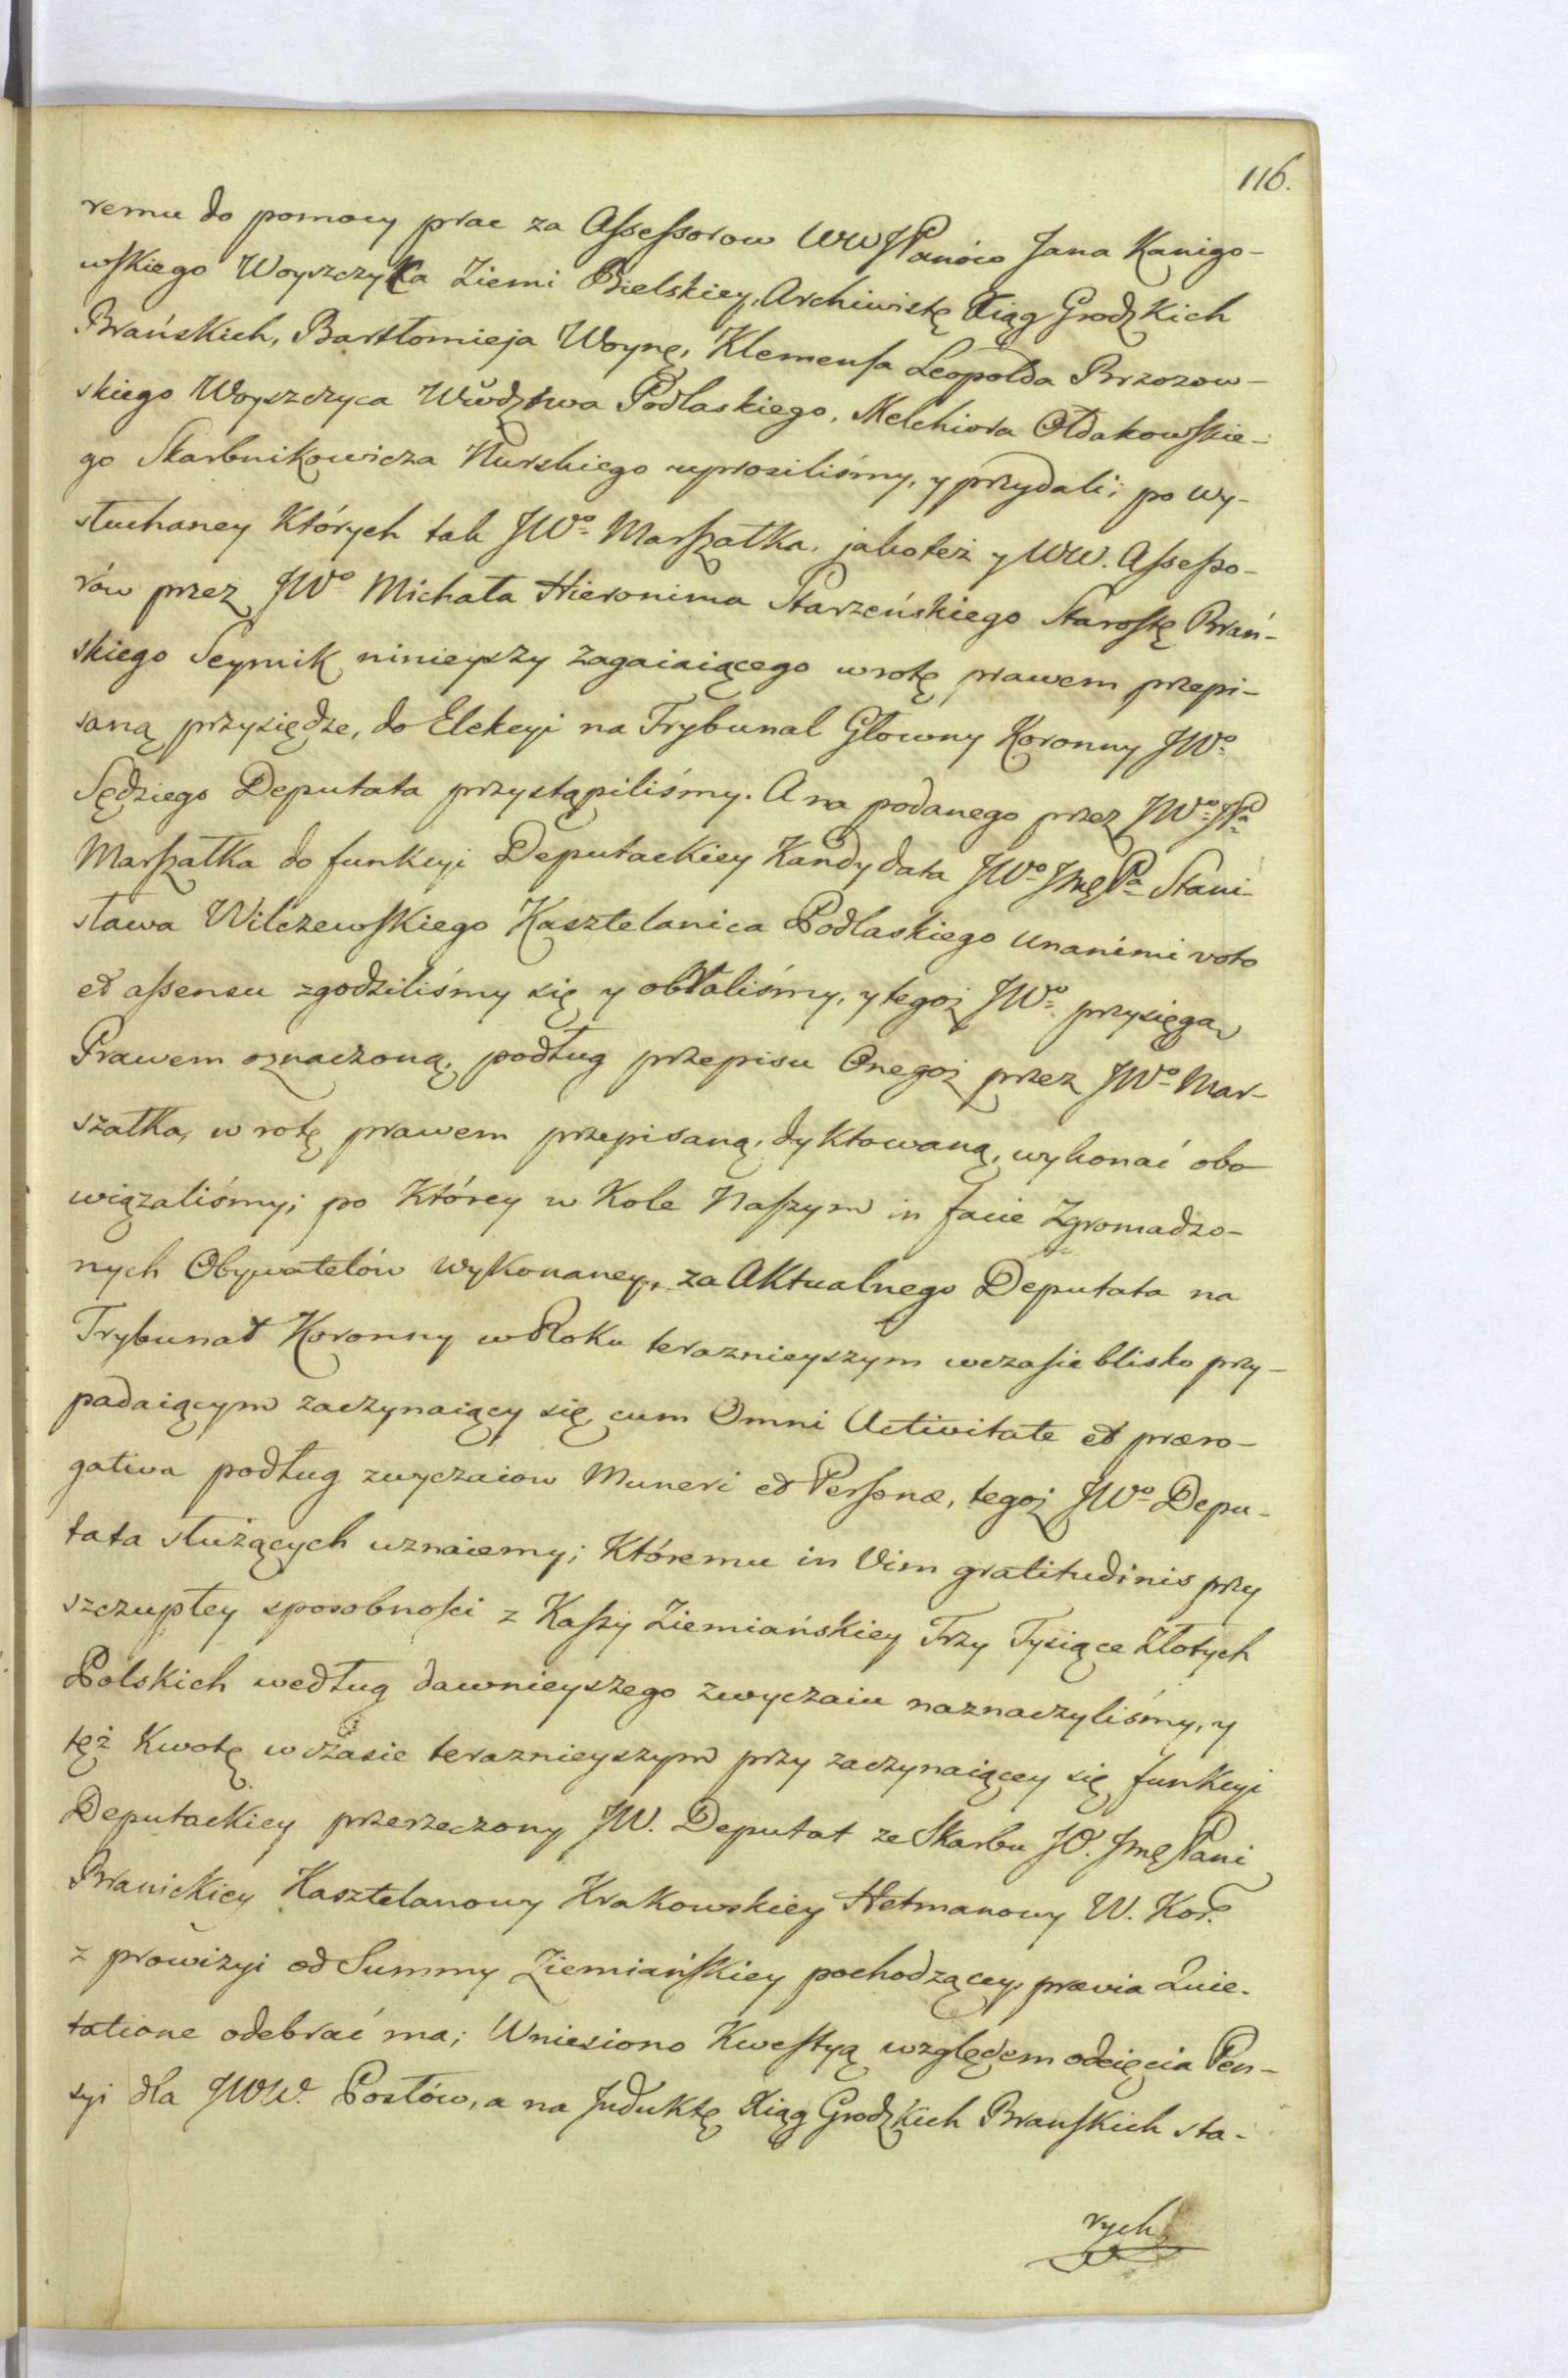 116.
remu do pomocy prac za Assessorow WWJPanów Jana Kanigo-
wskiego Woyszczyka Ziemi Bielskiey, Archiwistę Xiąg Grodzkich
Brańskich, Bartłomieja Woynę, Klemensa Leopolda Brzozow-
skiego Woyszczyca Wwdztwa Podlaskiego, Melchiora Ołdakowskie-
go Skarbnikowicza Nurskiego uprosiliśmy, y przydali; po wy-
słuchaney Których tak JWº Marszałka, jako też y WW. Assesso-
rów przez JWº Michała Hieronima Starzeńskiego Starostę Brań-
skiego Seymik ninieyszy zagaiaiącego w rotę prawem przepi-
saną przysiędze, do Elekcyi na Trybunal Głowny Koronny JWº
Sędziego Deputata przystąpiliśmy. A na podanego przez JWº JPª
Marszałka do funkcyi Deputackiey Kandydata JWº Jmę Pª Stani-
sława Wilczewskiego Kasztelanica Podlaskiego unanimi voto
et assensu zgodziliśmy się y obraliśmy, y tegoż JWº przysięgą
Prawem oznaczoną, podług przepisu Onegoż przez JWº Mar-
szałka, w rotę prawem przepisaną, dyktowaną, wykonać obo-
wiązaliśmy; po Którey w Kole Naszym in facie Zgromadzo-
nych Obywatelów wykonaney, za Aktualnego Deputata na
Trybunał Koronny w Roku teraznieyszym w czasie blisko przy-
padaiącym zaczynaiący się cum Omni Activitate et præro-
gativa podług zwyczaiow Muneri et Personæ, tegoż JWº Depu-
tata służących uznaiemy; Któremu in Vim gratitudinis przy
szczupłey sposobności z Kassy Ziemiańskiey Trzy Tysiące Złotych
Polskich według dawnieyszego zwyczaiu naznaczyliśmy, y
tęż Kwotę w czasie teraznieyszym przy zaczynaiącey się funkcyi
Deputackiey przerzeczony JW. Deputat ze Skarbu JO. Jmę Pani
Branickiey Kasztelanowy Krakowskiey Hetmanowy W. Kor.
z prowizyi od Summy Ziemiańskiey pochodzącey, prævia Quie-
tatione odebrać ma; Wniesiono Kwestyą względem odcięcia Pen-
syi dla JWW. Posłów, a na Juduktę Xiąg Grodzkich Branskich sta-
rych